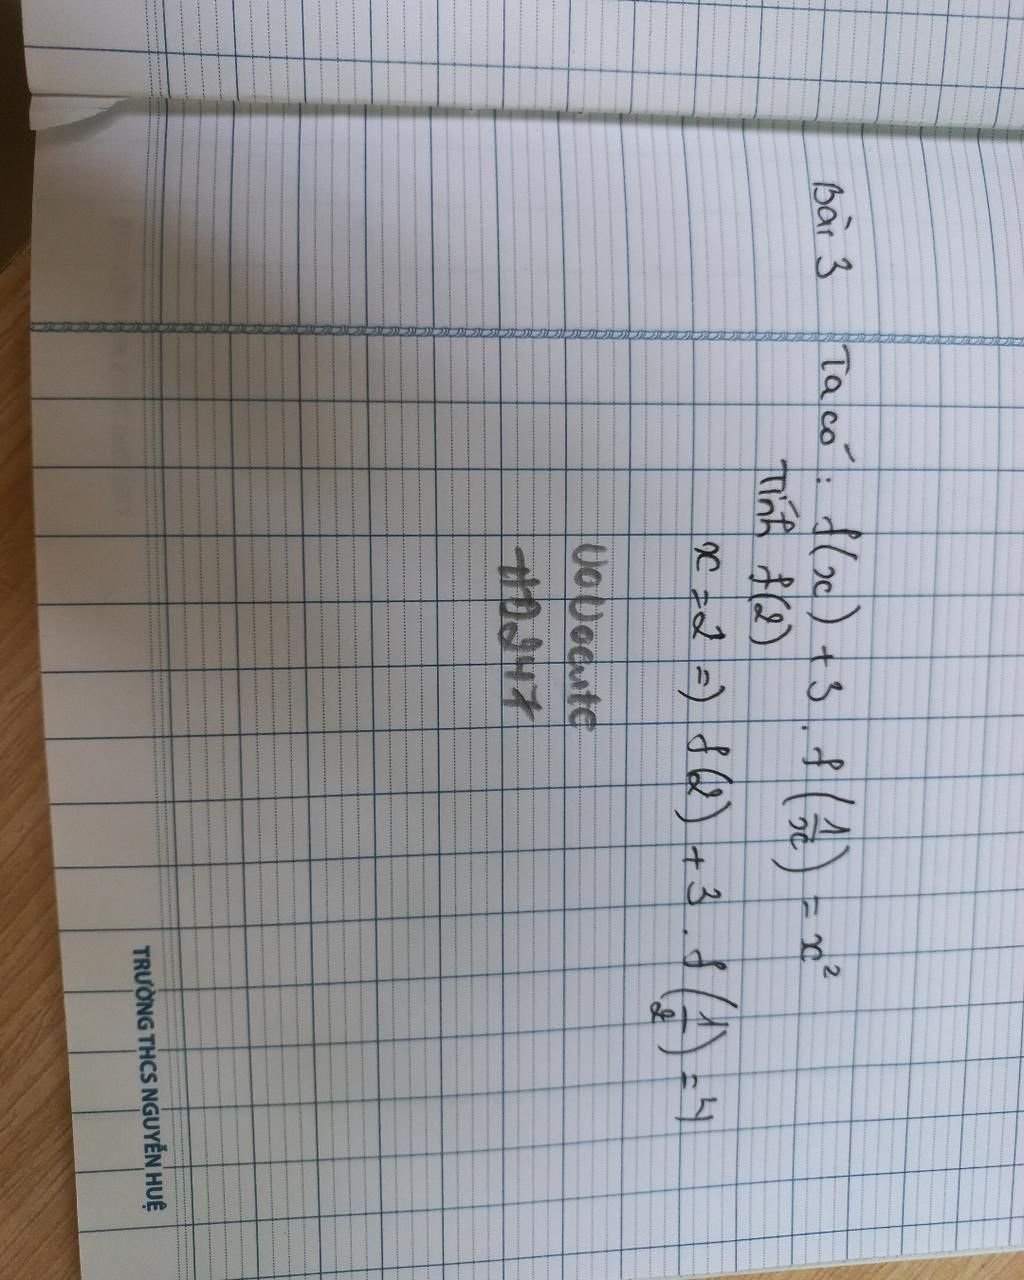 Bài 3 Ta có : f(x) + 3 . f(1/x) = x²
Tính f(2)
x = 2 => f(2) + 3 . f(1/2) = 4
UoUocute
#0247
TRƯỜNG THCS NGUYỄN HUỆ